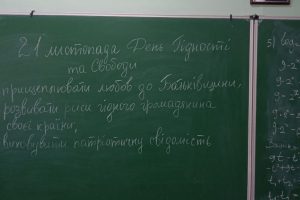 21 листопада День Гідності
та Свободи
прищеплювати любов до Батьківщини,
розвивати риси гідного громадянина
своєї країни,
виховувати патріотичну свідомість